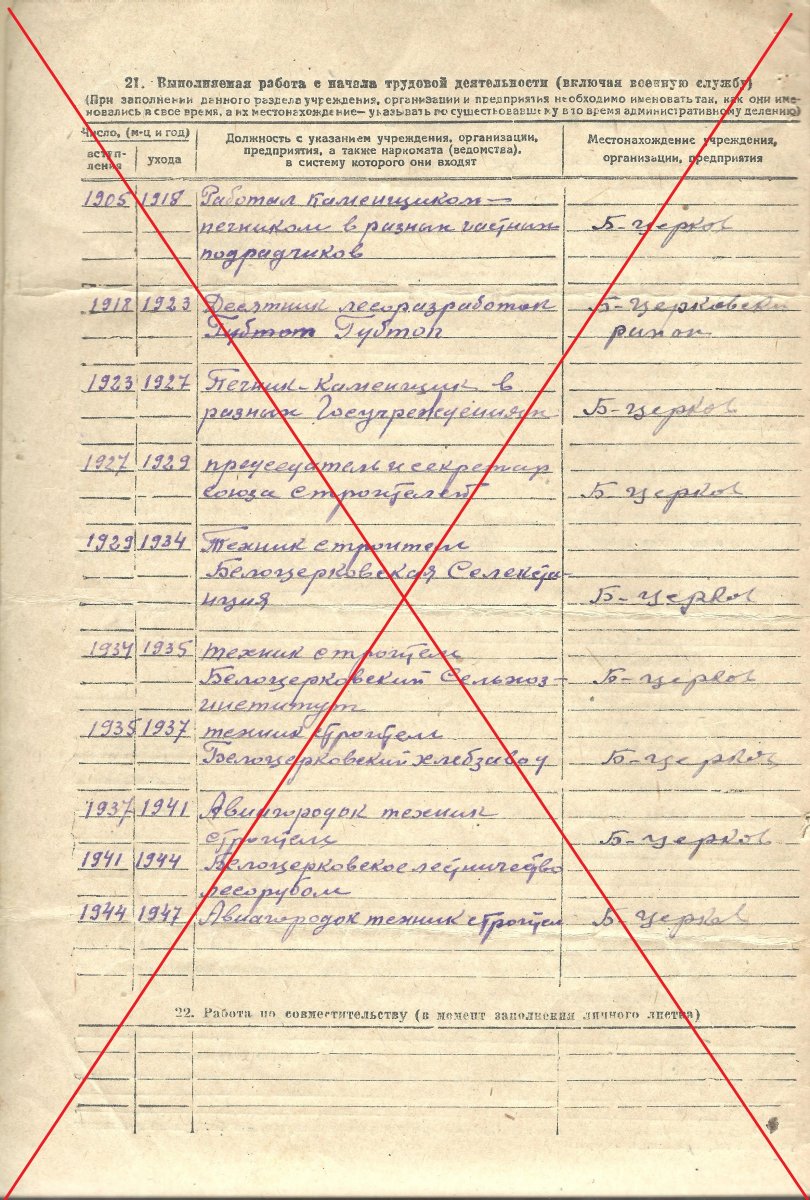 21. Выполняемая работа с начала трудовой деятельности (включая военную службу)
(При заполнении данного раздела учреждения, организации и предприятия необходимо именовать так, как они име-
новались в свое время, а их местонахождение— указывать по существовавшему в то время административному делению)
Число, (м-ц и год)
вступ-
ления
ухода
Должность с указанием учреждения, организации,
предприятия, а также наркомата (ведомства),
в систему которого они входят
Местонахождение учреждения,
организации, предприятия
1905 1918 Работал каменщиком—
печником в разных частных Б-Церков
подрадчиков
1918 1923 Десятник лесоразработок Б-Церковский
Губтоп Губтоп район
1923 1927 Печник-Каменщик в
разных Госучреждениях Б-Церков
1927 1929 председатель и секретар
союза строителей Б-Церков
1929 1934 Техник строител
Белоцерковская Селекста-
нция Б-Церков
1934 1935 техник строител
Белоцерковский Сельхоз- Б-церков
институт
1935 1937 техник строител
Белоцерковский хлебзавод Б-церков
1937 1941 Авиагородок техник
строител Б-Церков
1941 1944 Белоцерковское лесничество
лесорубом
1944 1947 Авиагородок техник строител Б-Церков
22. Работа по совместительству (в момент заполнения личного листка)